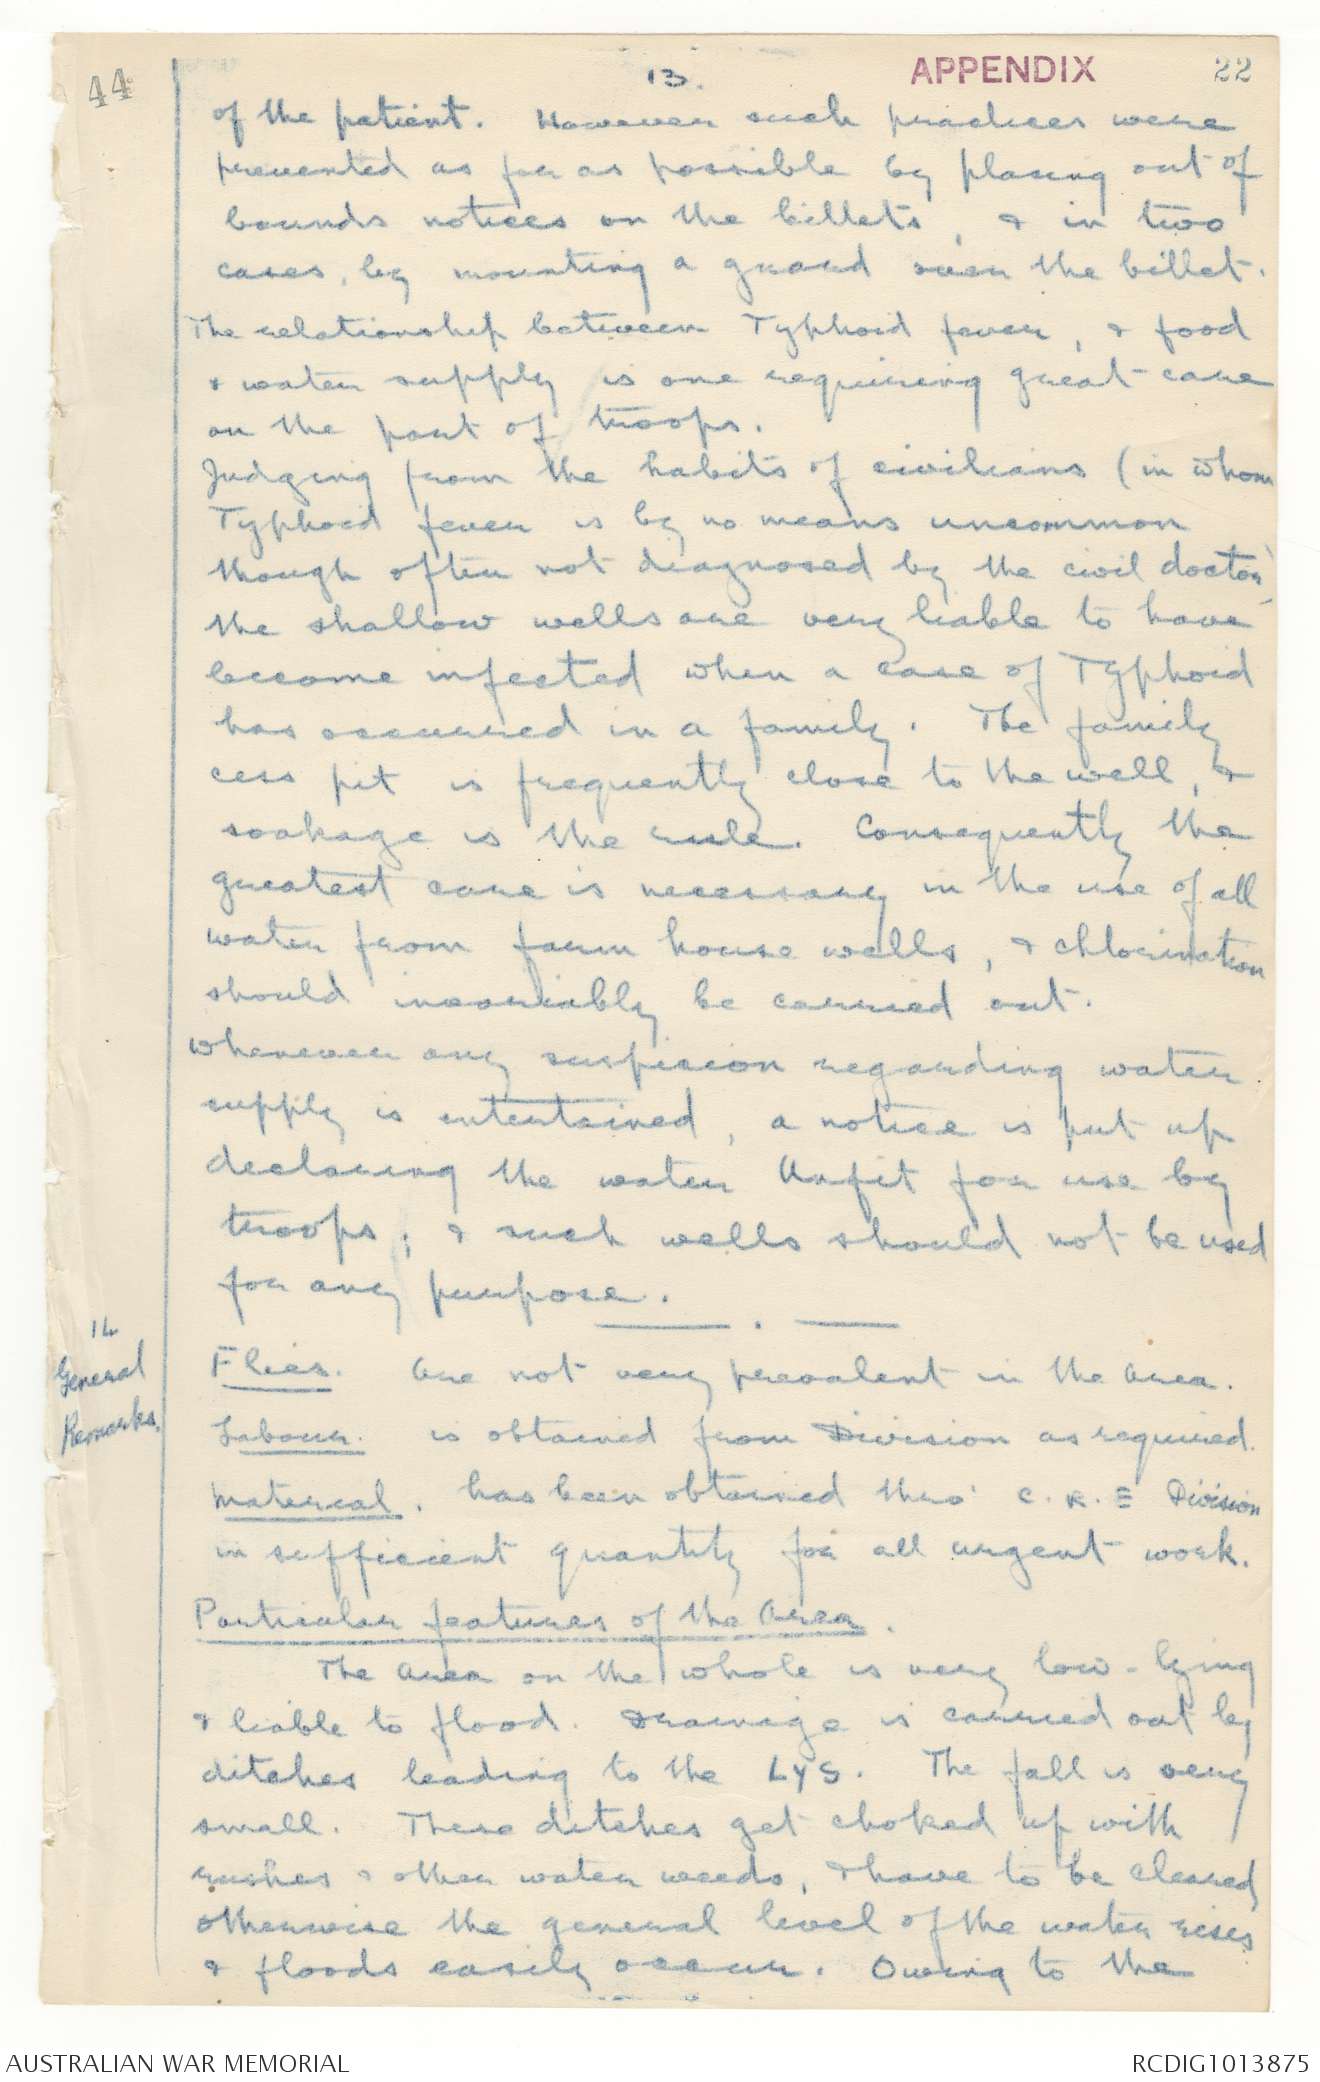 44
13.
APPENDIX 22
of the patient. However such practices were
prevented as far as possible by placing out of
bounds notices on the billets, & in two
cases, by mounting a guard over the billet.
The relationship between Typhoid fever, & food
& water supply is one requiring great care
on the part of troops.
Judging from the habits of civilians (in whom
Typhoid fever is by no means uncommon
though often not diagnosed by the civil doctor)
the shallow wells are very liable to have
become infected when a case of Typhoid
has occurred in a family. The family
cess pit is frequently close to the well, &
soakage is the rule. Consequently the
greatest care is necessary in the use of all
water from farm house wells, & chlorination
should invariably be carried out.
Whenever any suspicion regarding water
supply is entertained, a notice is put up
declaring the water Unfit for use by
troops, & such wells should not be used
for any purpose.
14
General
Remarks.
Flies. Are not very prevalent in the Area.
Labour. is obtained from Division as required.
Material. has been obtained thro' C.R.E Division
in sufficient quantity for all urgent work.
Particular features of the Area.
The Area on the whole is very low-lying
& liable to flood. Drainage is carried out by
ditches leading to the LYS. The fall is very
small. These ditches get choked up with
rushes & other water weeds, & have to be cleared
otherwise the general level of the water rises
& floods easily occur. Owing to the
AUSTRALIAN WAR MEMORIAL
RCDIG1013875